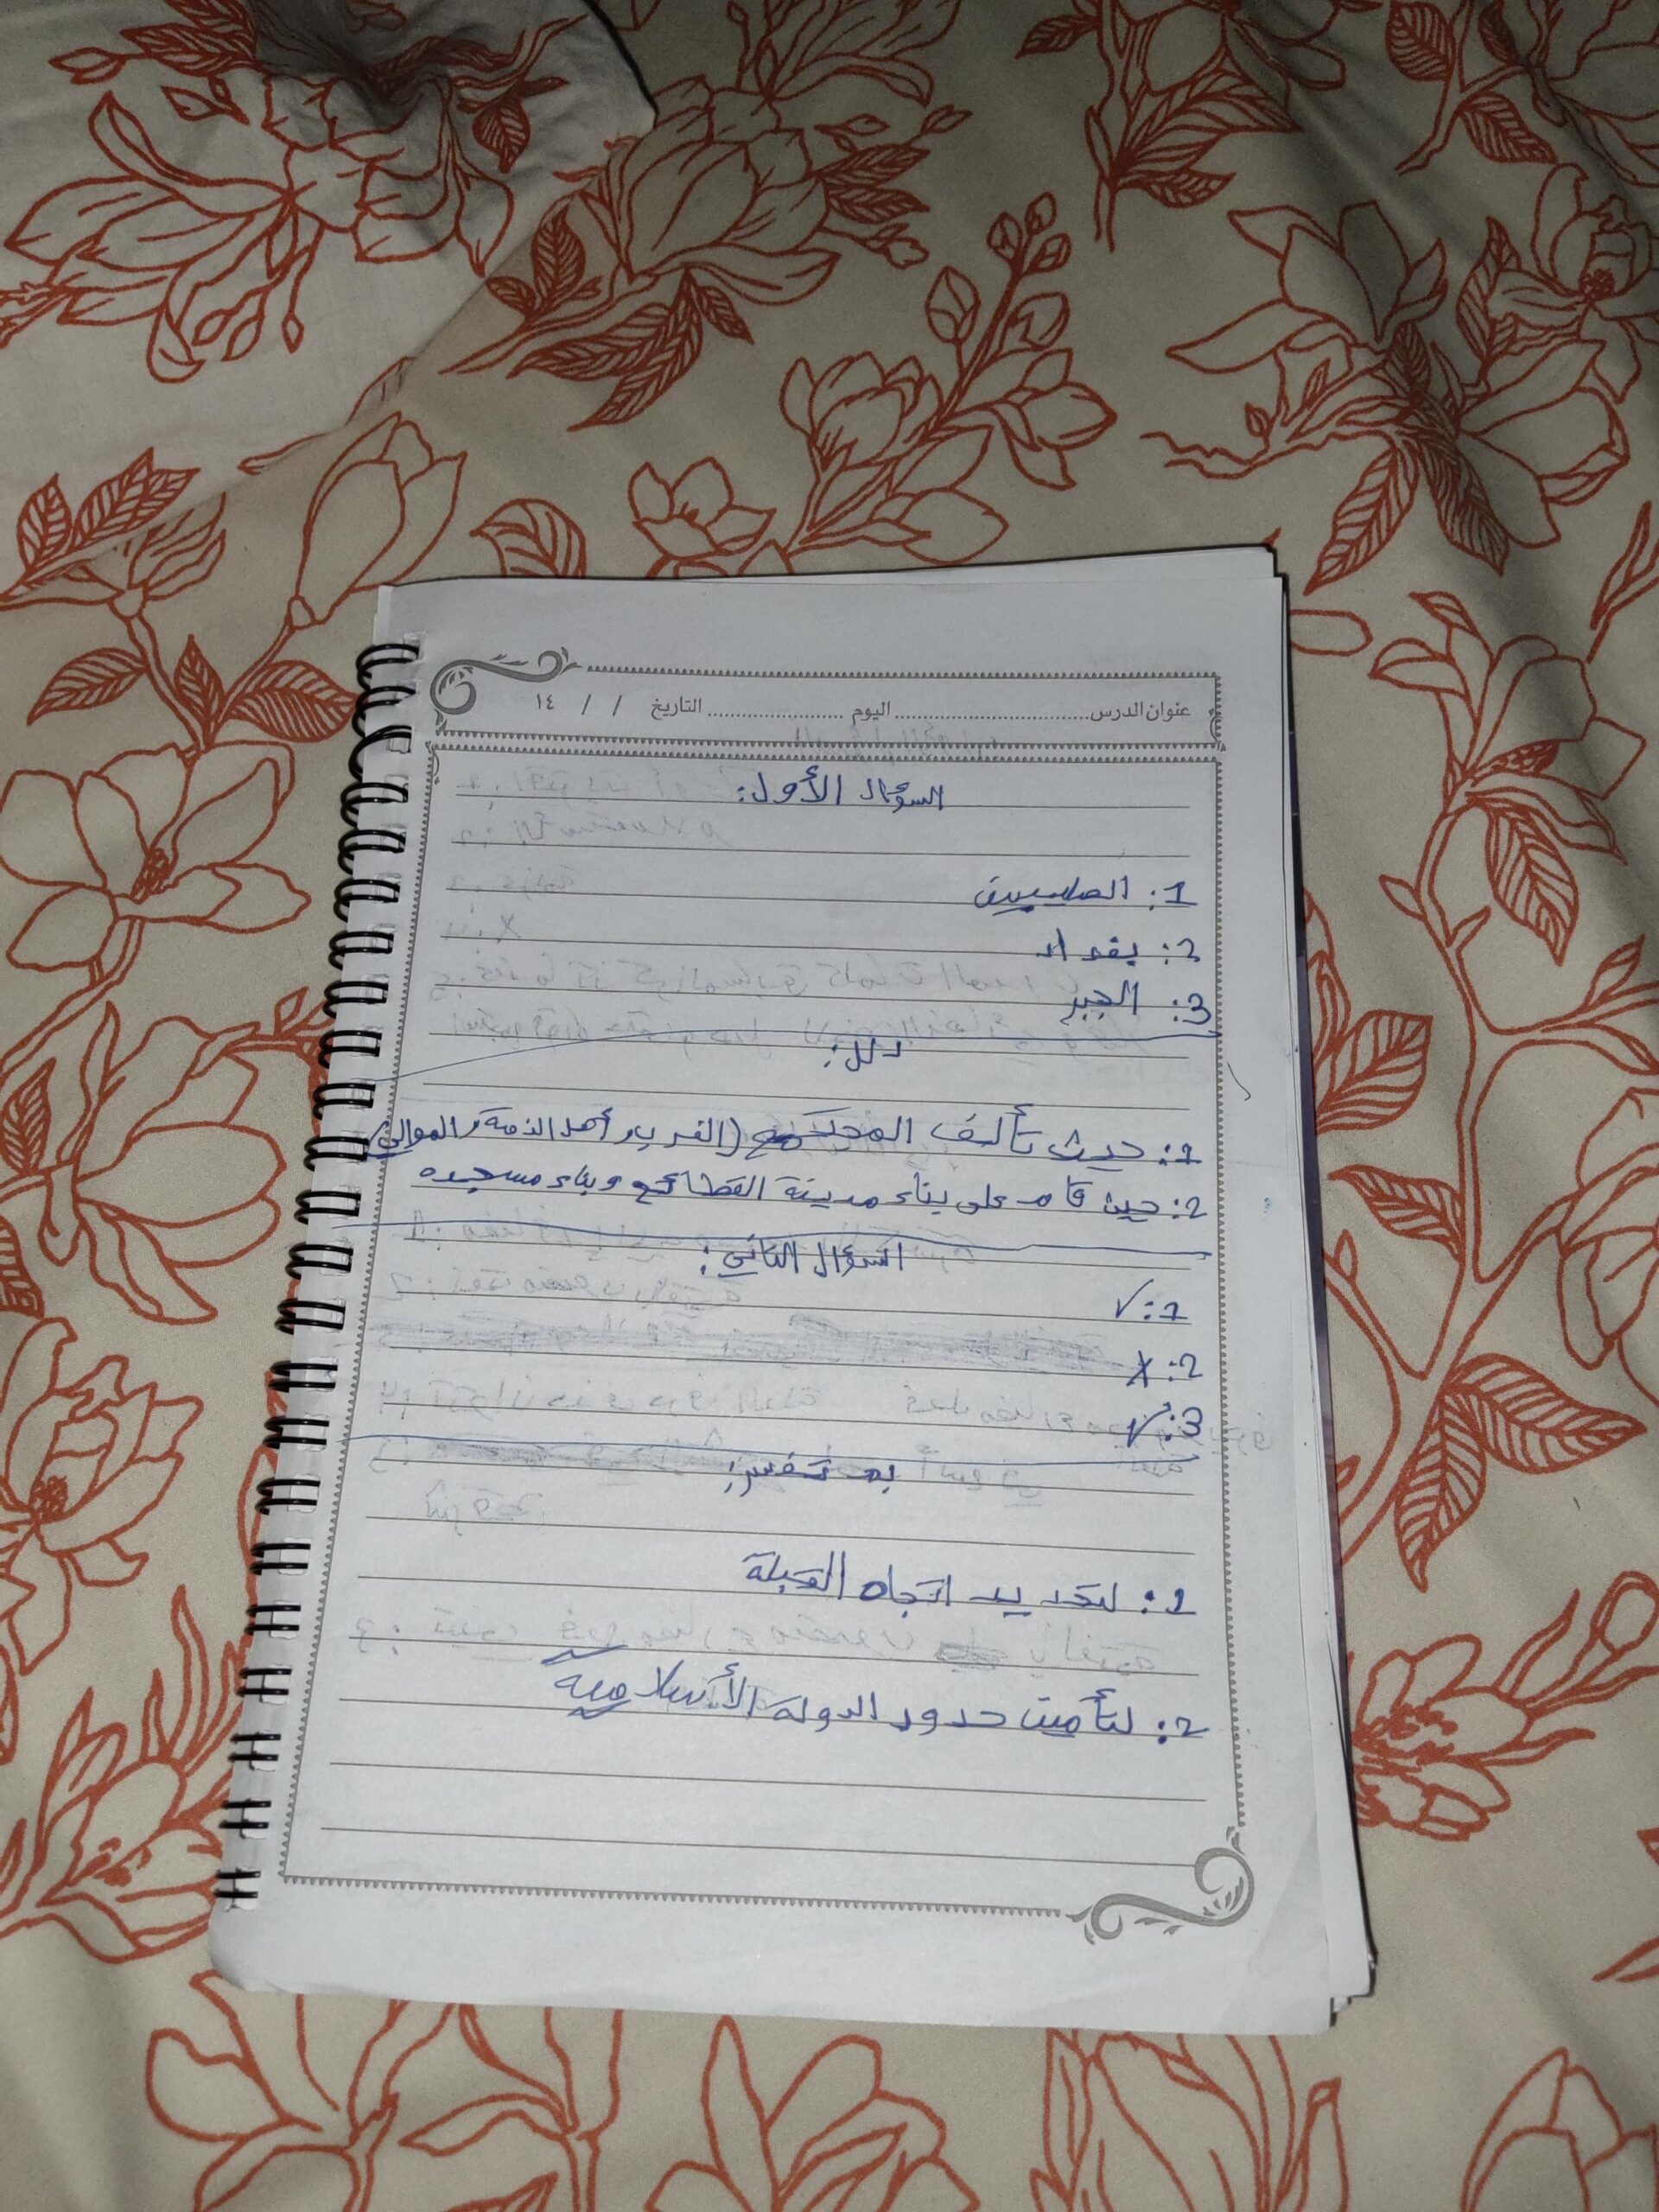 عنوان الدرس .................... اليوم .................... التاريخ / / ١٤
السؤال الأول:
1: الصليبيين
2: بغداد
3: الجبر
دلل:
1: حيث تألف المجتمع (العرب، أهل الذمة، الموالي)
2: حين قام على بناء مدينة القطائع وبناء مسجده
السؤال الثاني:
1: ✓
2: X
3: ✓
بم تفسر:
1: لتحديد اتجاه القبلة
2: لتأمين حدود الدولة الأسلامية